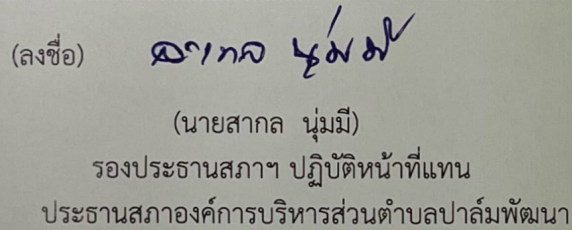 (ลงชื่อ) สากล นุ่มมี
(นายสากล นุ่มมี)
รองประธานสภาฯ ปฏิบัติหน้าที่แทน
ประธานสภาองค์การบริหารส่วนตำบลปาล์มพัฒนา